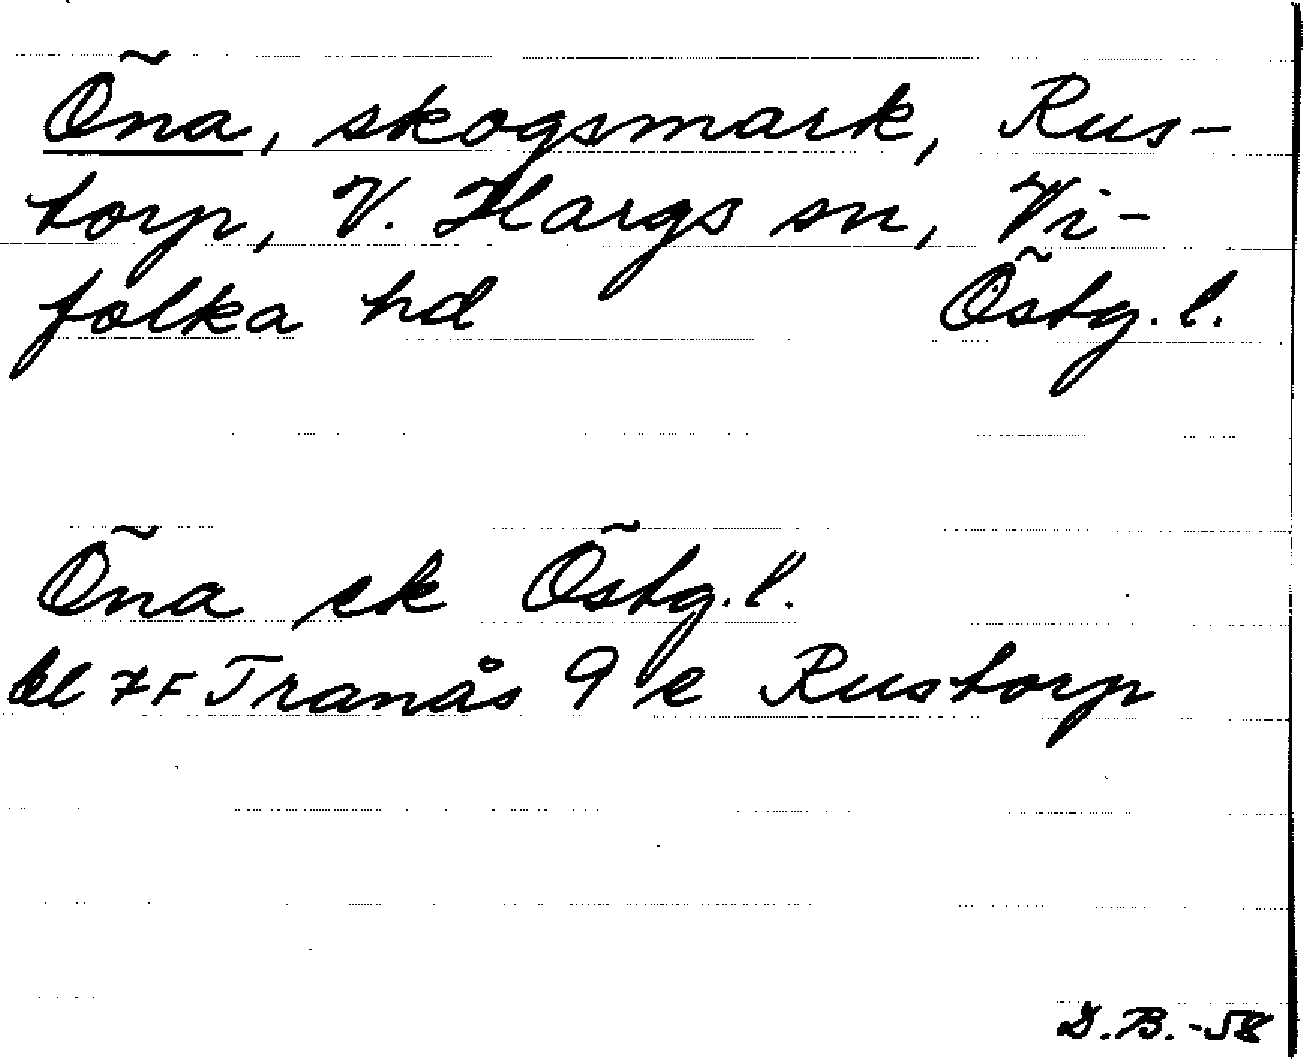 Öna, skogsmark, Rus-
torp, V. Hargs sn, Vi-
folka hd Östg. l.
Öna ek Östg. l.
bl 7F Tranås 9 e Rustorp
D.B. -58